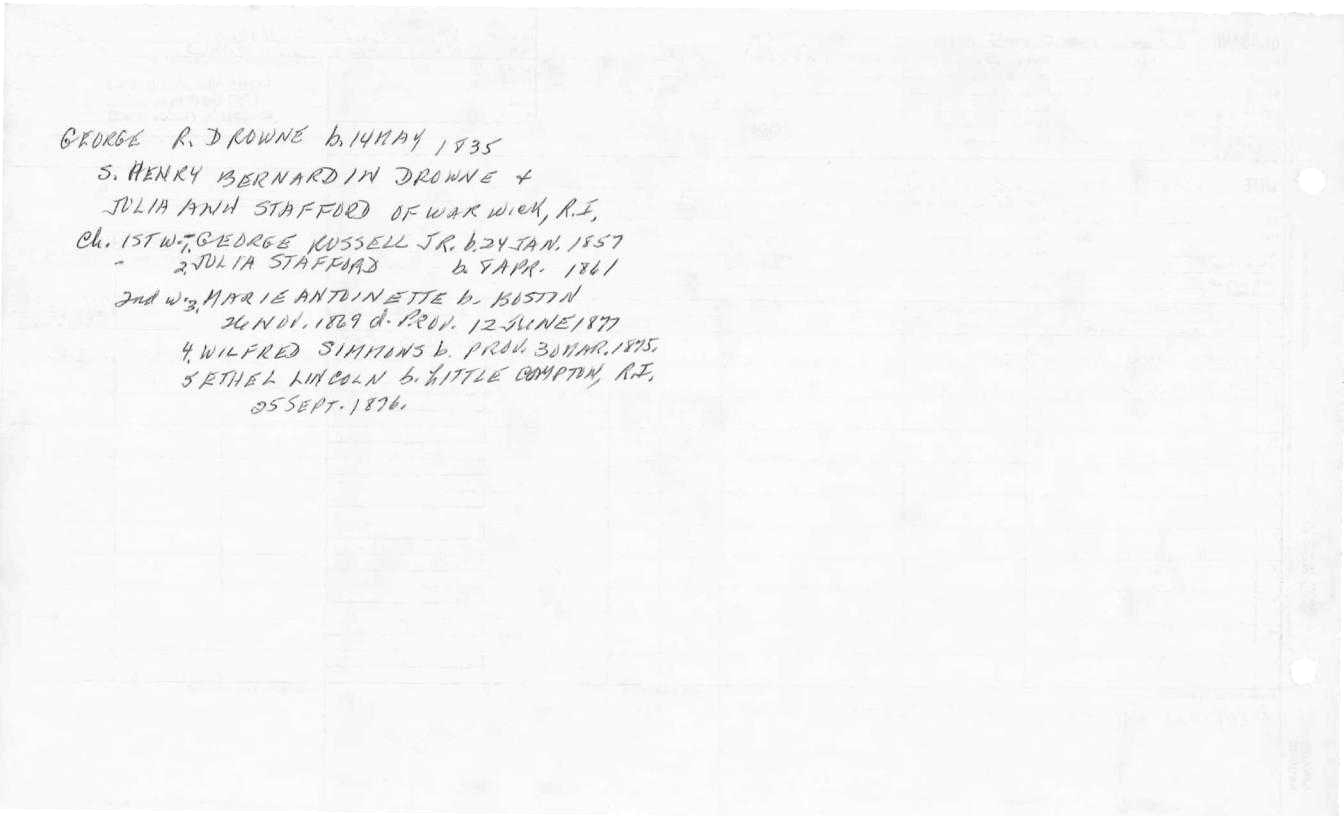 GEORGE R. DROWNE b. 14 MAY 1835
S. HENRY BERNARDIN DROWNE +
JULIA ANN STAFFORD OF WARWICK, R.I.
Ch. 1ST W-1. GEORGE RUSSELL JR. b. 24 JAN. 1857
" 2. JULIA STAFFORD b. 8 APR. 1861
2nd W-3. MARIE ANTOINETTE b. BOSTON
26 NOV. 1869 d. PROV. 12 JUNE 1877
4. WILFRED SIMMONS b. PROV. 30 MAR. 1875.
5 ETHEL LINCOLN b. LITTLE COMPTON, R.I.
25 SEPT. 1876.